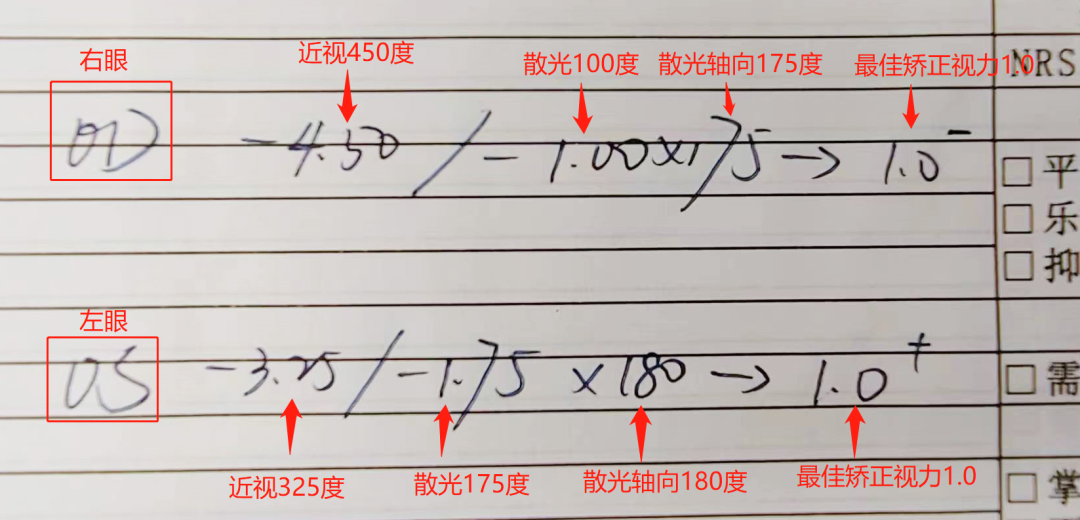 右眼 近视450度 散光100度 散光轴向175度 最佳矫正视力1.0
NRS
OD -4.50 / -1.00×175 → 1.0-
□ 平
□ 乐
□ 抑
左眼
OS -3.25 / -1.75 ×180 → 1.0+
□ 需
近视325度 散光175度 散光轴向180度 最佳矫正视力1.0
□ 掌